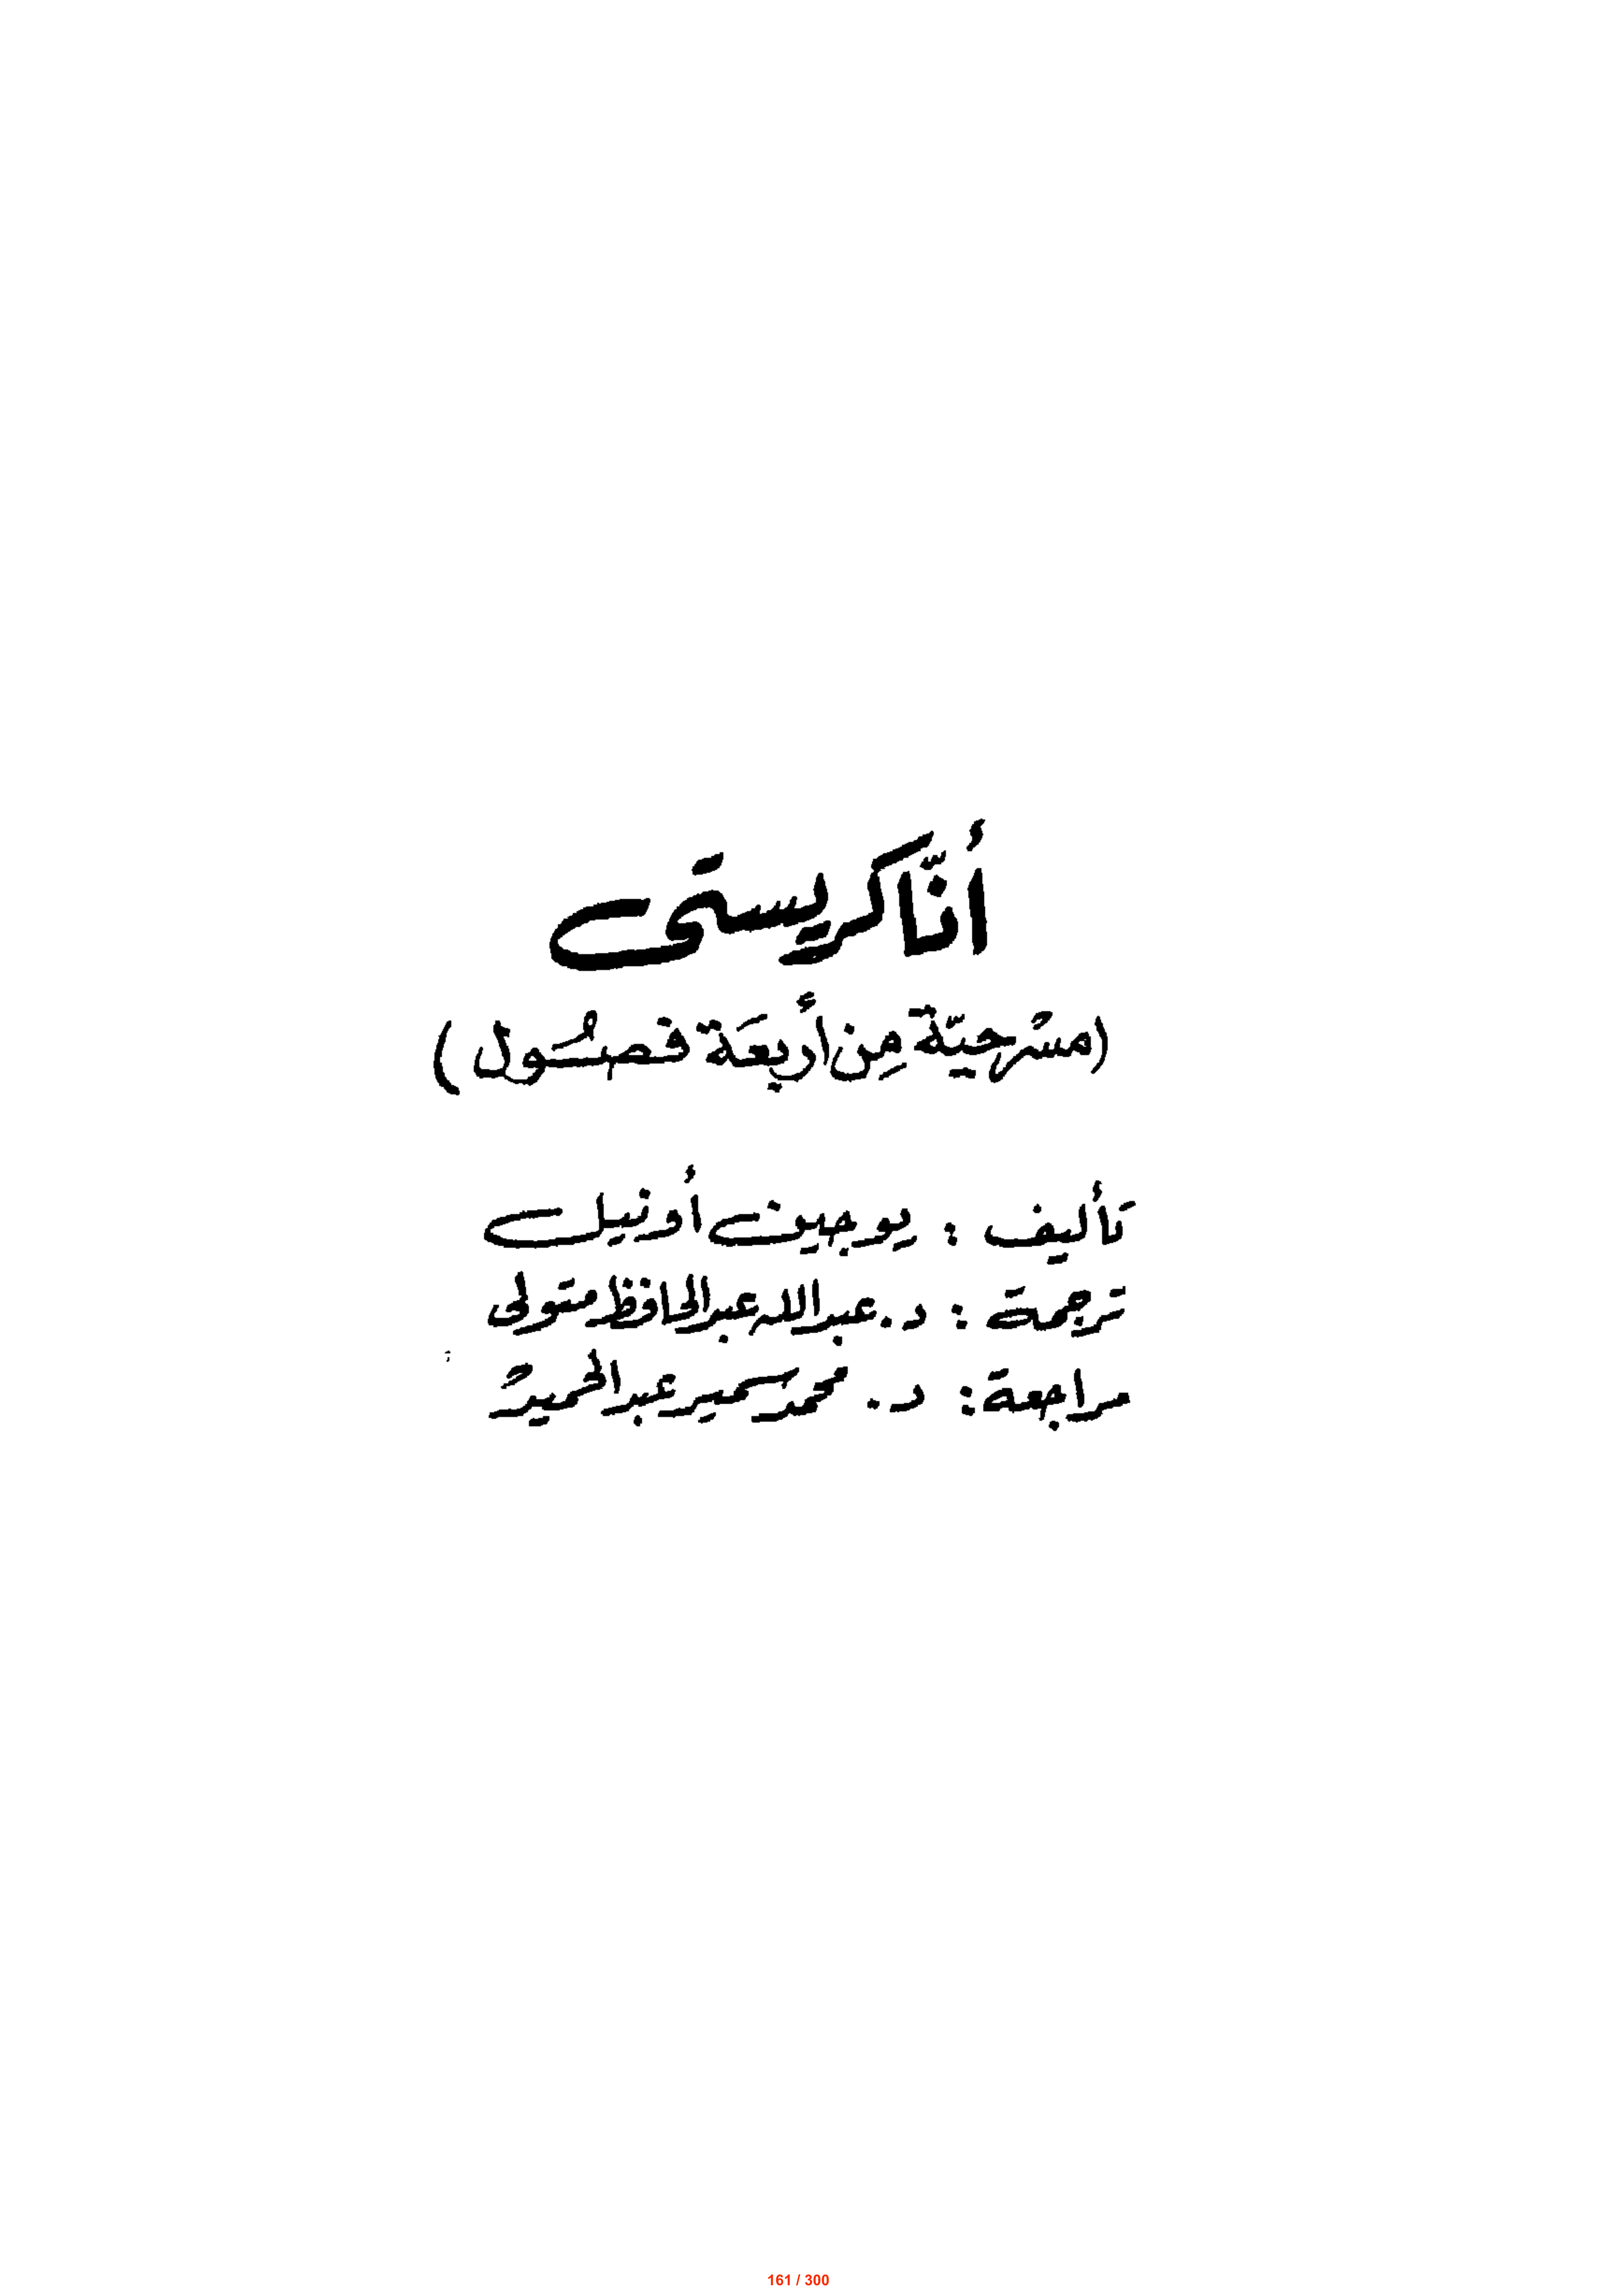 أنّا كريستى
(مسْرحيّة مِن أربعَة فصُول)
تأليف : يوجين أونيل
ترجمة : د. عبد الله عبد الحافظ متولى
مراجعة : د. محمد سمير عبد الحميد
161 / 300